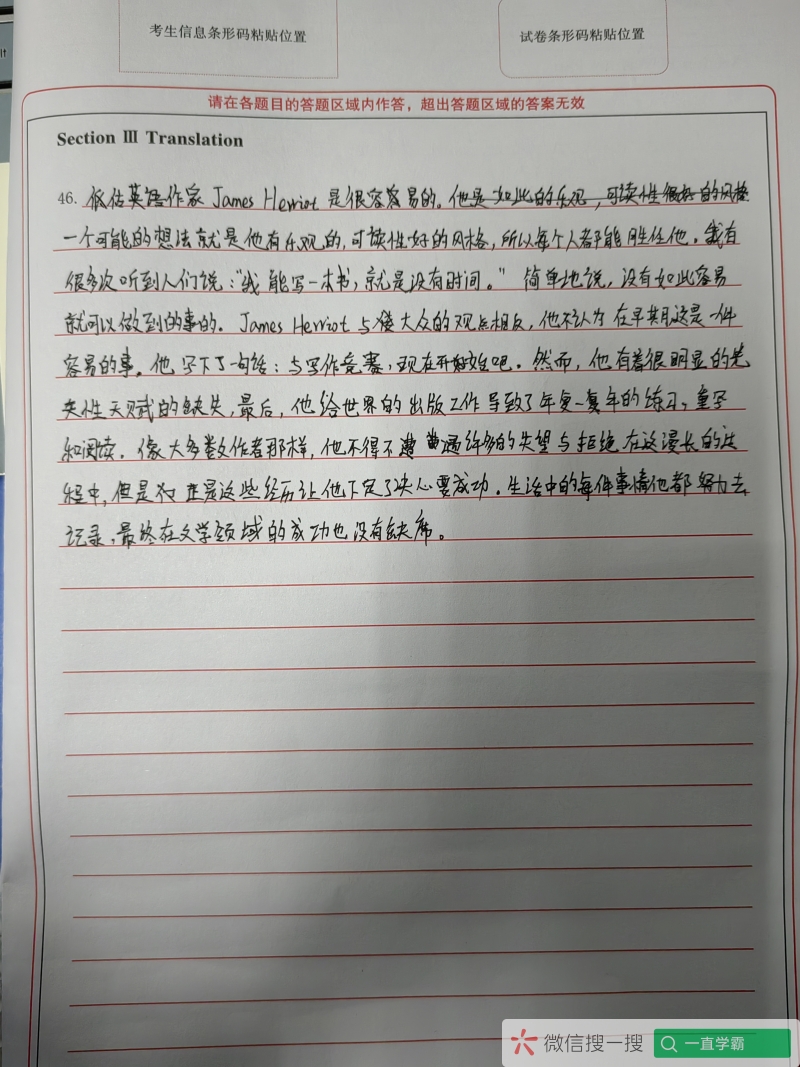 lt
考生信息条形码粘贴位置
试卷条形码粘贴位置
请在各题目的答题区域内作答，超出答题区域的答案无效
Section Ⅲ Translation
46. 低估英语作家 James Herriot 是很容容易的。他是如此的乐观，可读性很好的风格
一个可能的想法就是他有乐观的，可读性好的风格，所以每个人都能胜任他。我有
很多次听到人们说："我能写一本书，就是没有时间。" 简单地说，没有如此容易
就可以做到的事的。James Herriot 与大众的观点相反，他不认为在早期这是一件
容易的事。他写下了一句话：与写作竞赛，现在开始吧。然而，他有着很明显的先
天性天赋的缺失，最后，他给世界的出版工作导致了年复一复年的练习，重写
和阅读。像大多数作者那样，他不得不遭遇许多的失望与拒绝在这漫长的过
程中，但是正是这些经历让他下定了决心要成功。生活中的每件事情他都努力去
记录，最终在文学领域的成功也没有缺席。
微信搜一搜
一直学霸